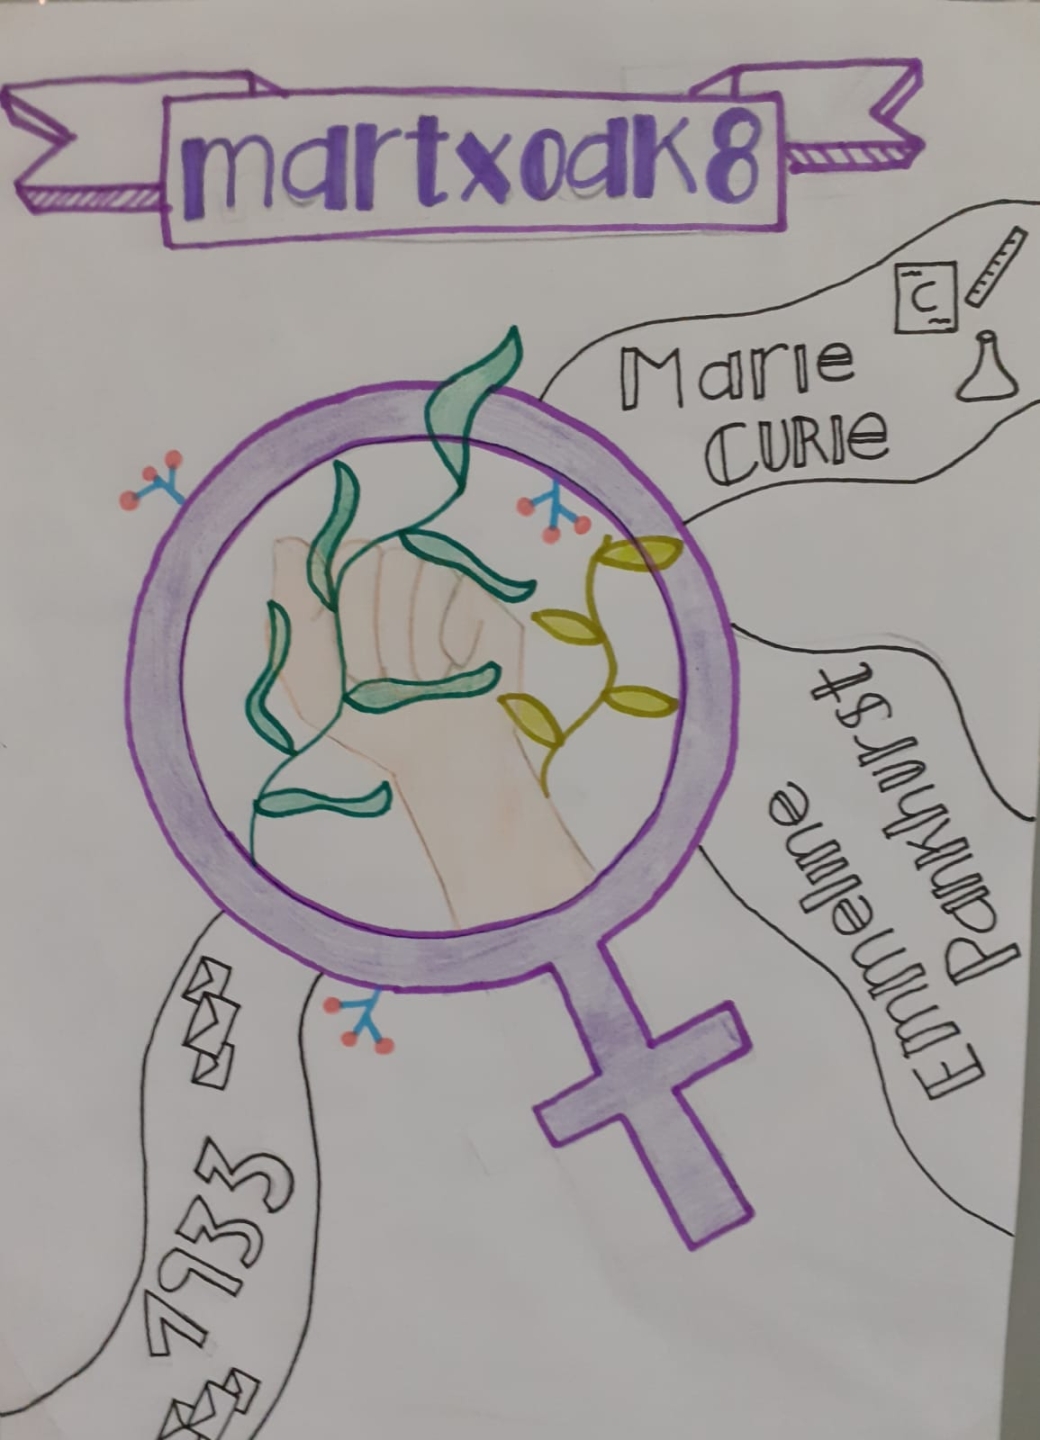 martxoak8
C
Marie
CURIE
Emmeline
Pankhurst
1933